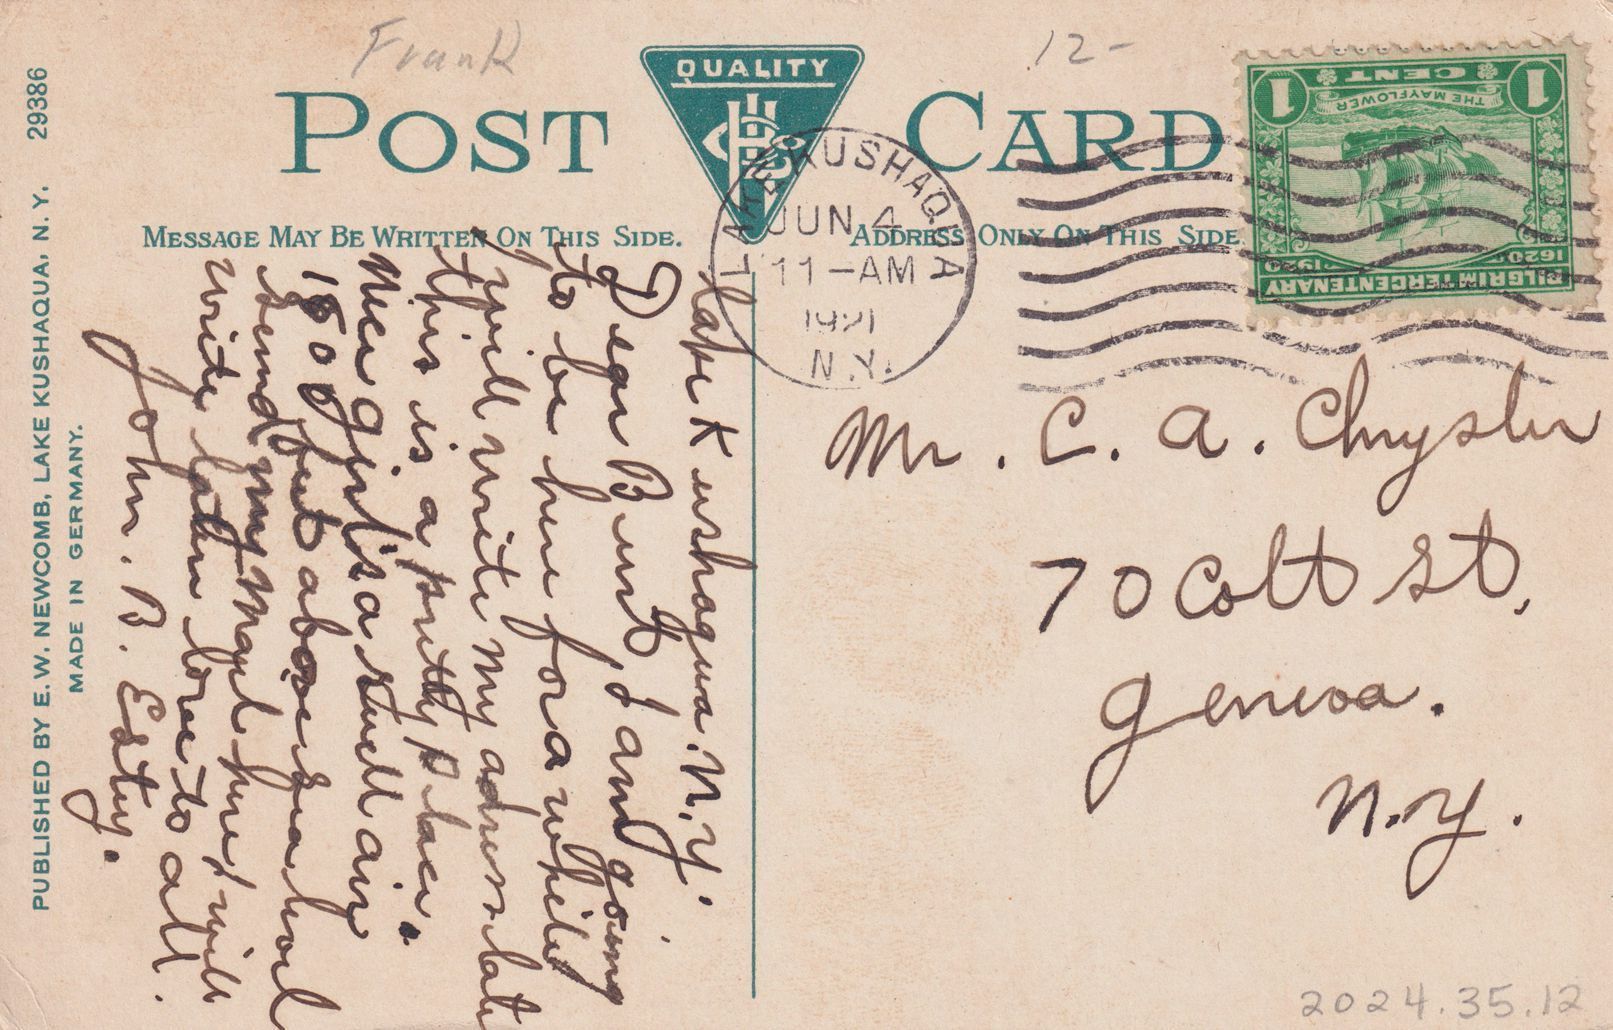 Frank
12-
POST CARD
QUALITY
MESSAGE MAY BE WRITTEN ON THIS SIDE.
ADDRESS ONLY ON THIS SIDE
LAKE KUSHAQUA
JUN 4
11-AM
1921
N.Y.
1 CENT 1
THE MAYFLOWER
1620 1920
PILGRIM TERCENTENARY
PUBLISHED BY E. W. NEWCOMB, LAKE KUSHAQUA, N. Y. 29386
MADE IN GERMANY.
Lake Kushaqua. N.Y.
Dear Burt I am going
to be here for a while
will write my adress late
this is a pretty place.
Mer girls a swell air
1800 feet above sea leavl
send my mayl here will
write later love to all.
John. B. Estey.
Mr. C. A. Chrysler
70 Colt St,
Geneva.
N.Y.
2024.35.12